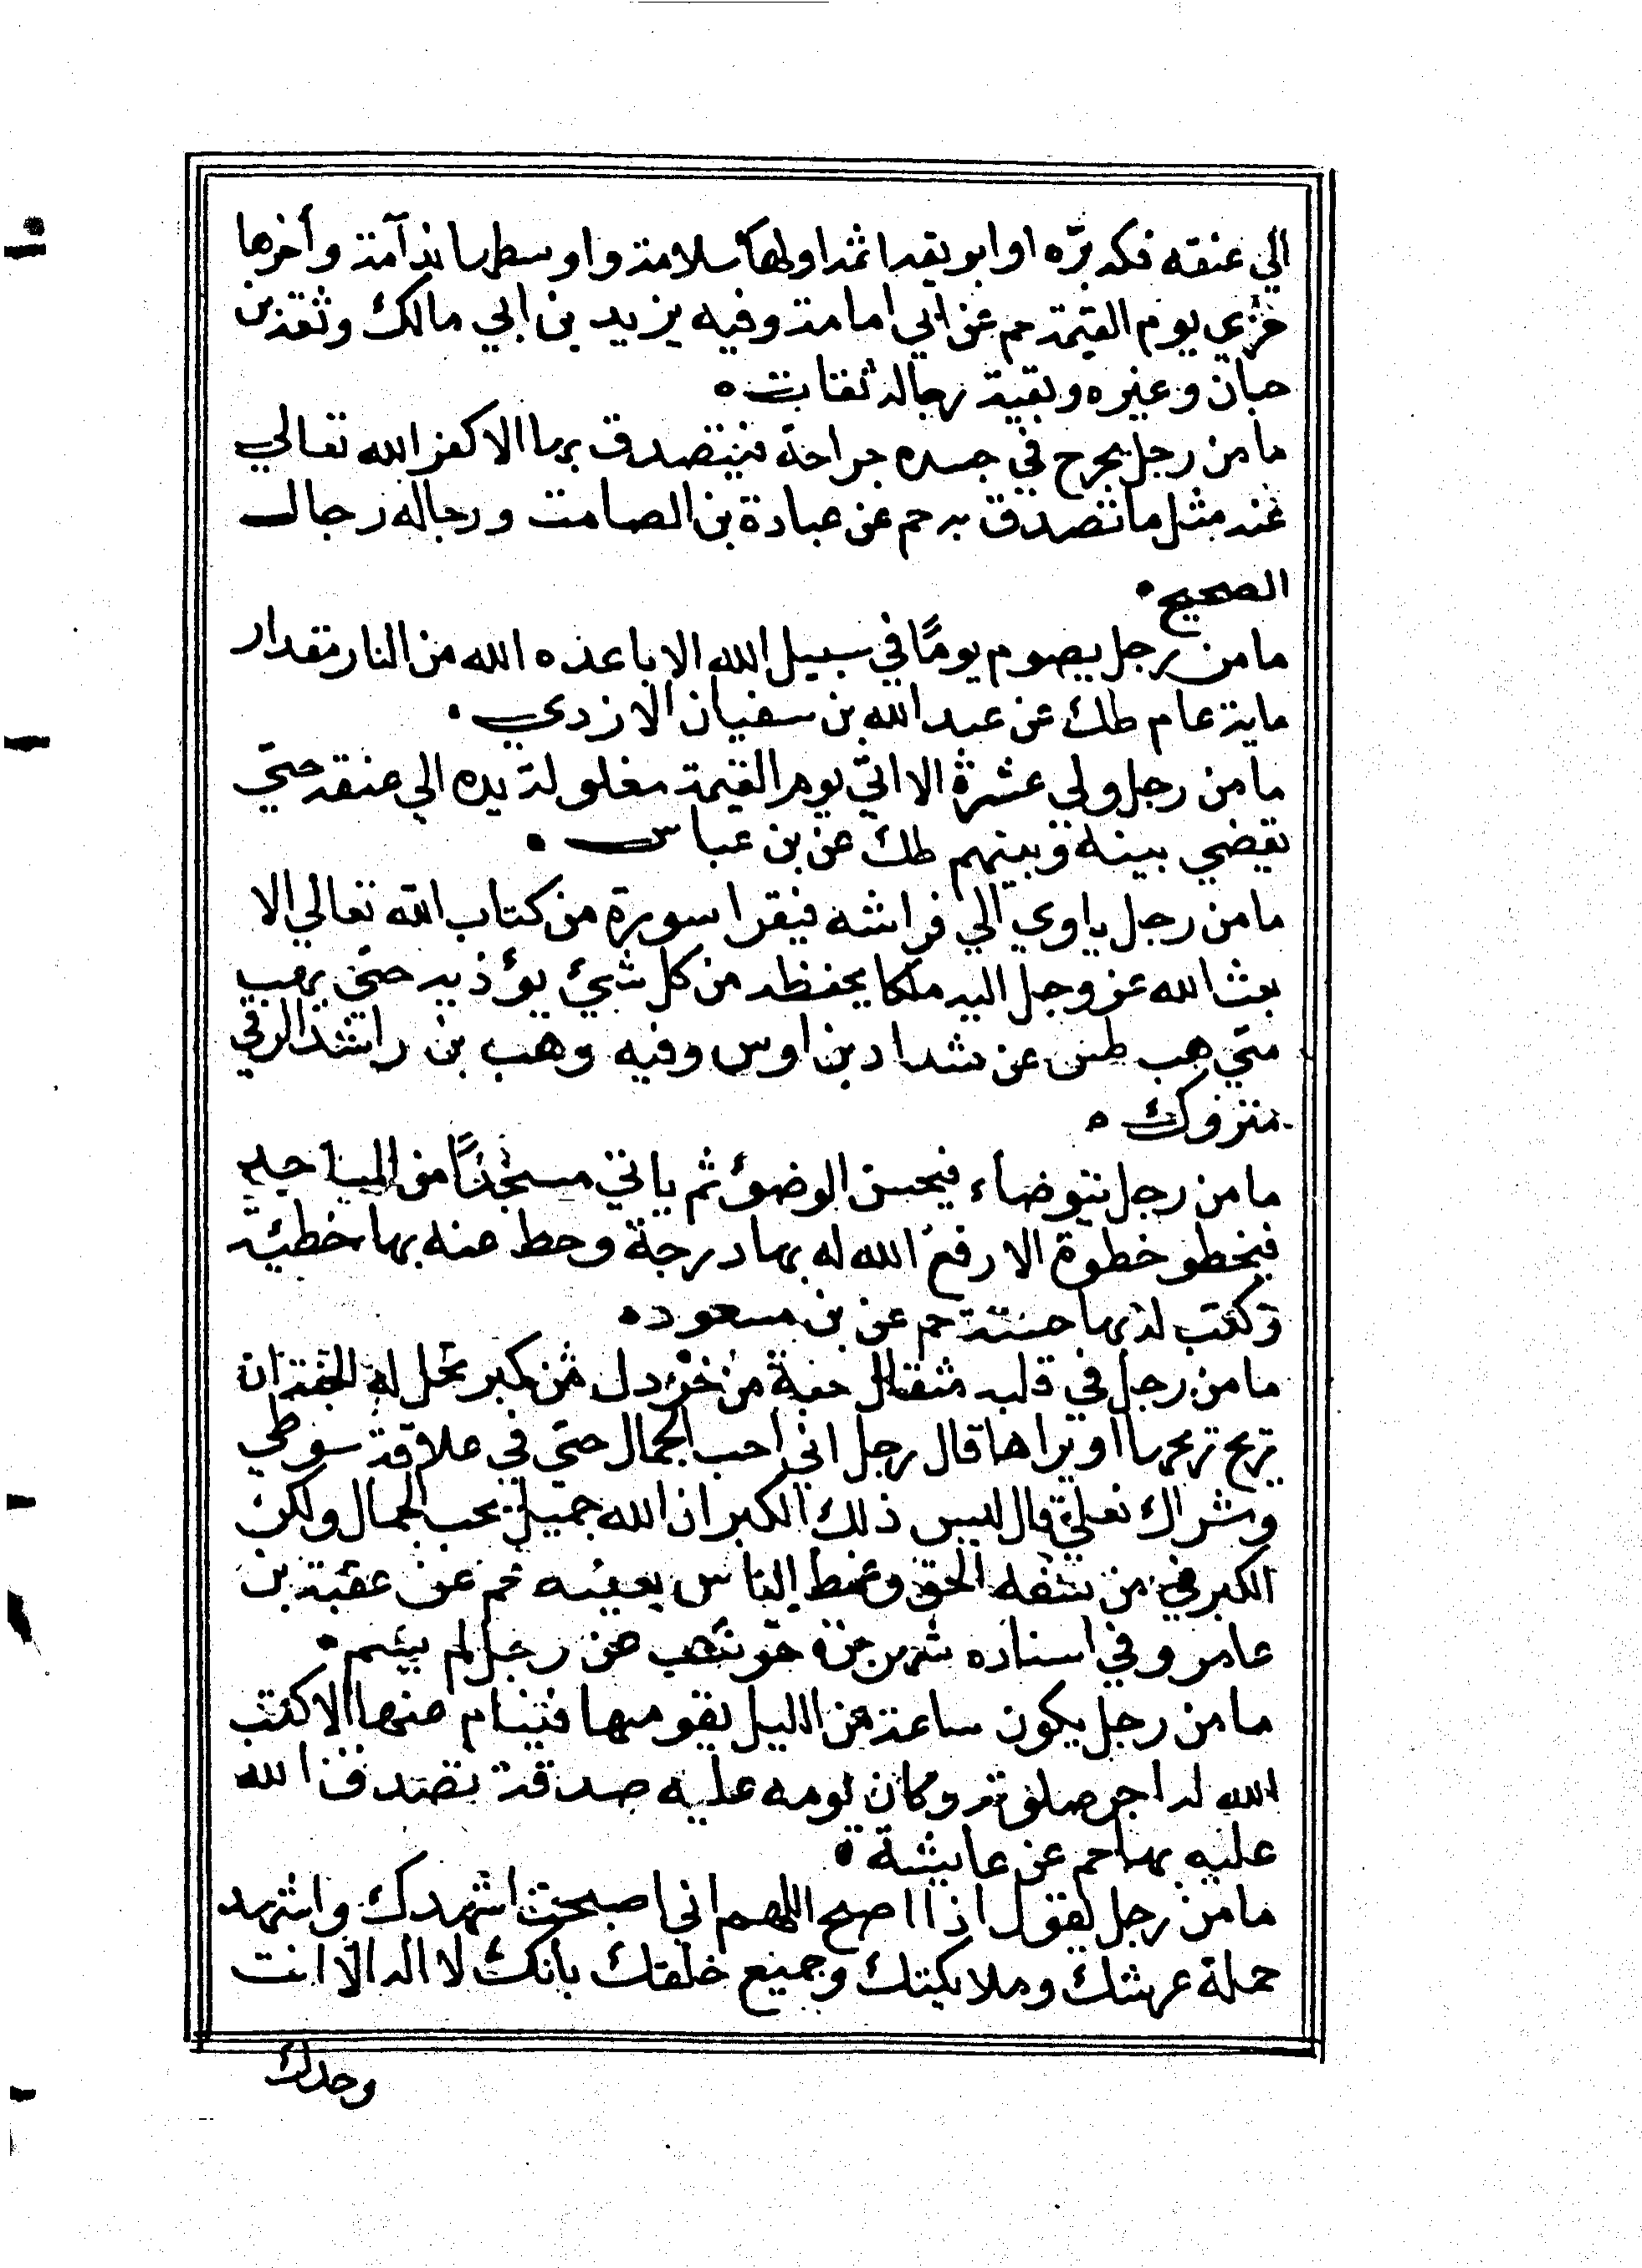 الي عنقه فكه برّه او ابويقه اثمه اولها سلامة واوسطها ندآمة وأخرها
خزي يوم القيمة حم عن ابي امامة وفيه يزيد بن ابي مالك وثقه بن
حبان وغيره وبقية رجاله ثقات ٥
ما من رجل يجرح في جسده جراحة فيتصدق بها الا كفر الله تعالي
عنه مثل ما تصدق به حم عن عبادة بن الصامت ورجاله رجال
الصحيح •
ما من رجل يصوم يومًا في سبيل الله الا باعده الله من النار مقدار
ماية عام طك عن عبد الله بن سفيان الازدي •
ما من رجل ولي عشرة الا اتي يوم القيمة مغلولة يده الي عنقه حتي
يقضي بينه وبينهم طك عن بن عباس •
ما من رجل ياوي الي فراشه فيقرا سورة من كتاب الله تعالي الا
بعث الله عز وجل اليه ملكا يحفظه من كل شيئ يؤذيه حتي يهب
متي هب طس عن شداد بن اوس وفيه وهب بن راشد الرقي
متروك ٥
ما من رجل يتوضاء فيحسن الوضوء ثم ياتي مسجدًا من المساجد
فيخطو خطوة الا رفع الله له بها درجة وحط عنه بها خطيئة
وكتب له بها حسنة حم عن بن مسعود •
ما من رجل في قلبه مثقال حبة من خردل من كبر تحل له الجنة ان
يريح ريحها او يراها قال رجل اني احب الجمال حتي في علاقة سوطي
وشراك نعلي قال ليس ذلك الكبر ان الله جميل يحب الجمال ولكن
الكبر من سفه الحق وغمط الناس بعينه حم عن عقبة بن
عامر وفي اسناده شهر بن حوشب عن رجل لم يسم •
ما من رجل يكون ساعة من الليل يقومها فينام عنها الا كتب
الله له اجر صلوته وكان نومه عليه صدقة تصدق الله
عليه بها حم عن عايشة •
ما من رجل يقول اذا اصبح اللهم اني اصبحت اشهدك واشهد
حملة عرشك وملايكتك وجميع خلقك بانك لا اله الا انت
وحدك